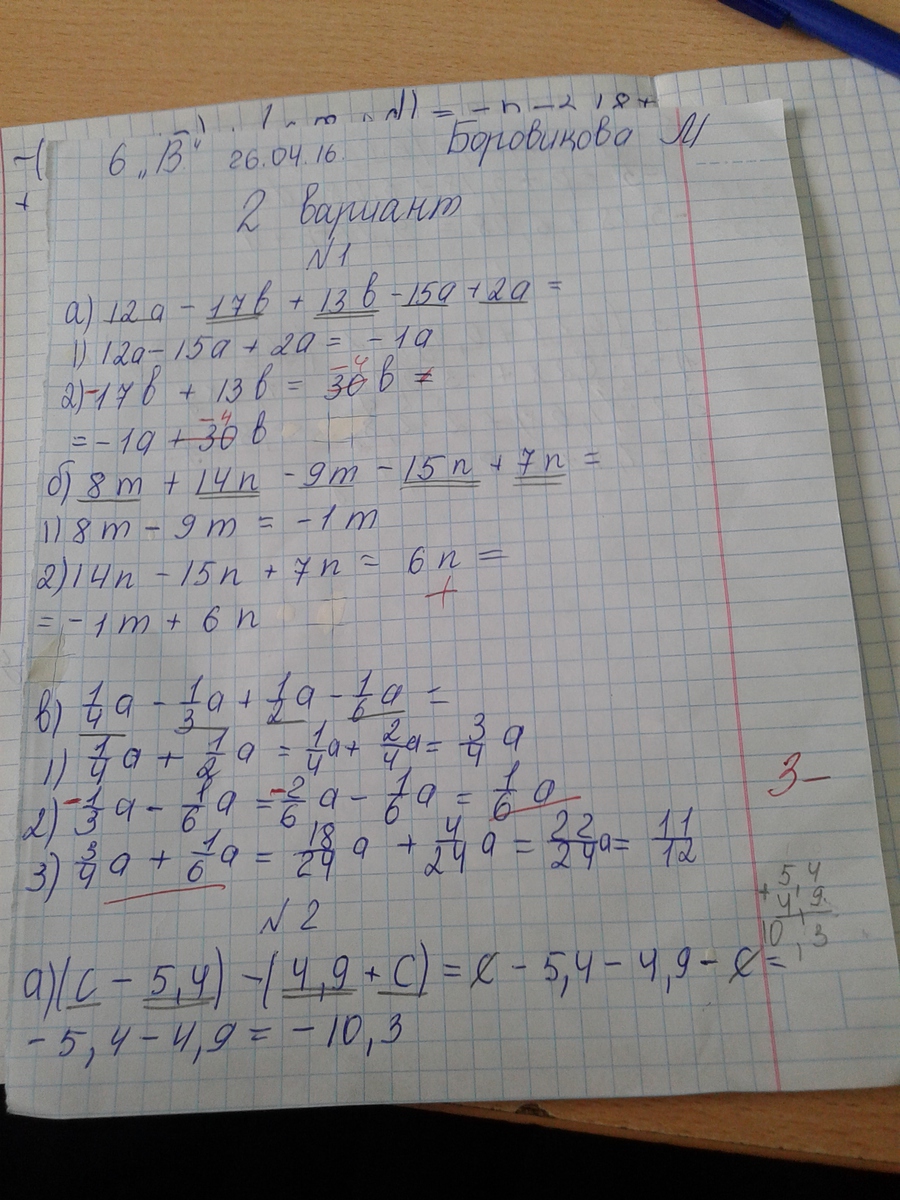 6 „В" 26.04.16. Боровикова М
2 вариант
№1
а) 12a - 17в + 13в - 15a + 2a =
1) 12a - 15a + 2a = -1a
2) -17в + 13в = 30 -4 в =
= -1a + 30 -4 в
б) 8m + 14n - 9m - 15n + 7n =
1) 8m - 9m = -1m
2) 14n - 15n + 7n = 6n =
+
= -1m + 6n
в) 1/4 a - 1/3 a + 1/2 a - 1/6 a =
1) 1/4 a + 1/2 a = 1/4 a + 2/4 a = 3/4 a
3-
2) -1/3 a - 1/6 a = -2/6 a - 1/6 a = 1/6 a
3) 3/4 a + 1/6 a = 18/24 a + 4/24 a = 22/24 a = 11/12
№2
+ 5,4
4,9
10,3
а) (c - 5,4) - (4,9 + c) = c - 5,4 - 4,9 - c =
-5,4 - 4,9 = -10,3